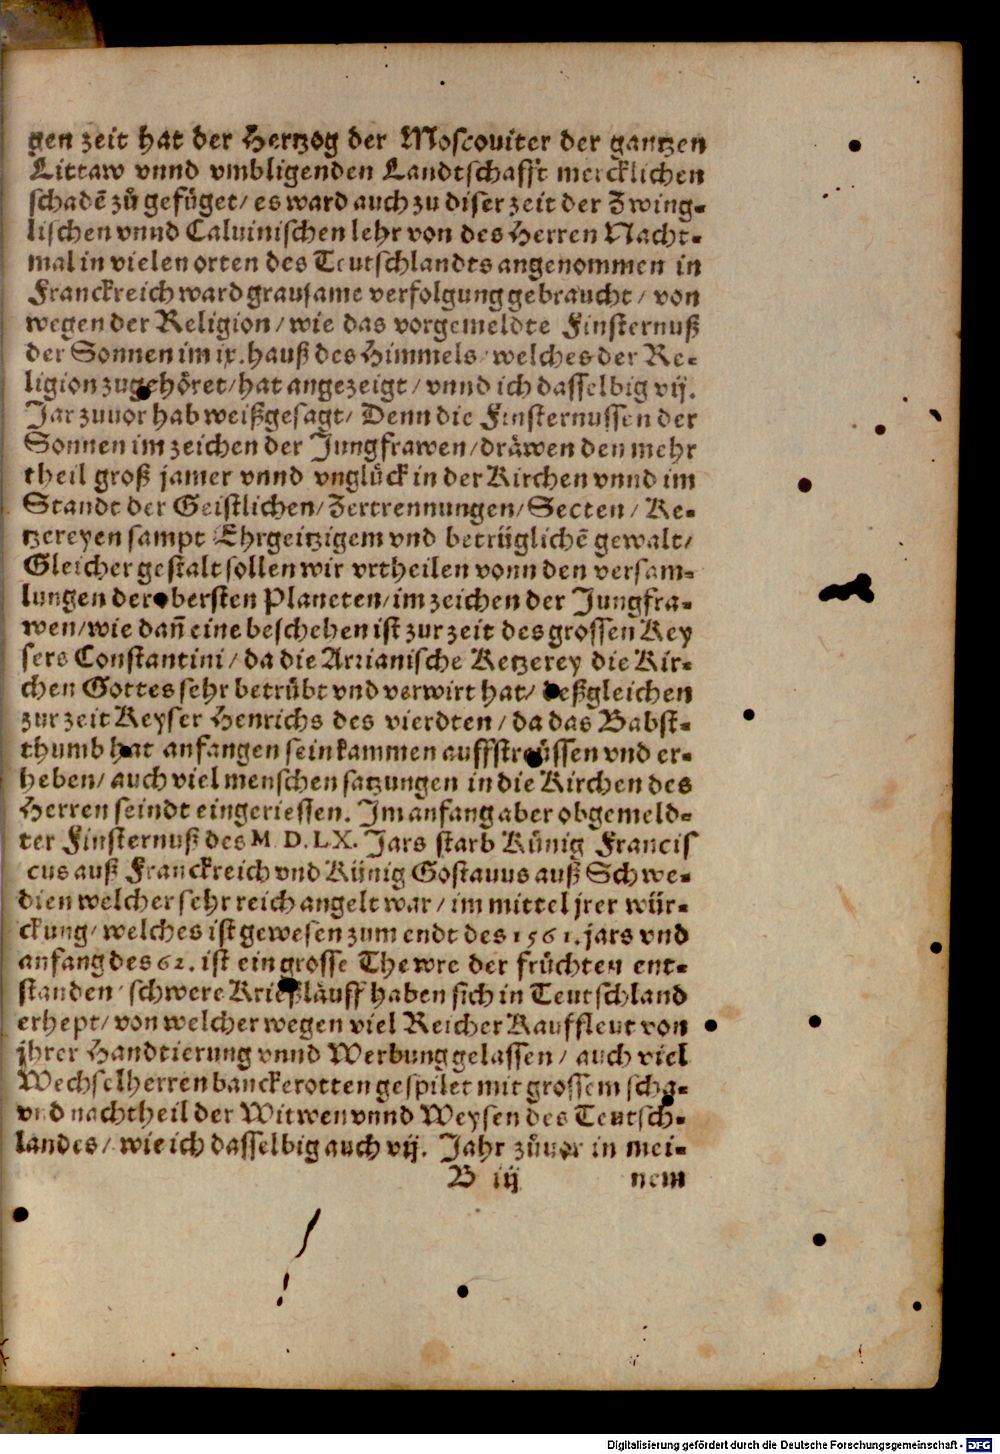 gen zeit hat der Hertzog der Moscouiter der gantzen
Littaw vnnd vmbligenden Landtschafft mercklichen
schadē zů gefüget/ es ward auch zu diser zeit der Zwing-
lischen vnnd Caluinischen lehr von des Herren Nacht-
mal in vielen orten des Teutschlandts angenommen in
Franckreich ward grausame verfolgung gebraucht / von
wegen der Religion / wie das vorgemeldte Finsternuß
der Sonnen im ix. hauß des Himmels / welches der Re-
ligion zugehöret/ hat angezeigt / vnnd ich dasselbig vij.
Jar zuuor hab weißgesagt/ Denn die Finsternussen der
Sonnen im zeichen der Jungfrawen / dräwen den mehr
theil groß jamer vnnd vnglück in der Kirchen vnnd im
Standt der Geistlichen/ Zertrennungen/ Secten / Ke-
tzereyen sampt Ehrgeitzigem vnd betrüglichē gewalt/
Gleicher gestalt sollen wir vrtheilen vonn den versam-
lungen der obersten Planeten/ im zeichen der Jungfra-
wen/ wie dañ eine beschehen ist zur zeit des grossen Key
sers Constantini / da die Arrianische Ketzerey die Kir-
chen Gottes sehr betrübt vnd verwirt hat/ deßgleichen
zur zeit Keyser Henrichs des vierdten / da das Babst-
thumb hat anfangen sein kammen auffstreüssen vnd er-
heben/ auch viel menschen satzungen in die Kirchen des
Herren seindt eingeriessen. Im anfang aber obgemeld-
ter Finsternuß des M D. L X. Jars starb Künig Francis
cus auß Franckreich vnd Künig Gostauus auß Schwe-
dien welcher sehr reich an gelt war / im mittel jrer wür-
ckung/ welches ist gewesen zum endt des 1561. jars vnd
anfang des 62. ist ein grosse Thewre der früchten ent-
standen / schwere Krießläuff haben sich in Teutschland
erhept/ von welcher wegen viel Reicher Kauffleut von
jhrer Handtierung vnnd Werbung gelassen / auch viel
Wechselherren banckerotten gespilet mit grossem scha-
vnd nachtheil der Witwen vnnd Weysen des Teutsch-
landes / wie ich dasselbig auch vij. Jahr zůuor in mei-
B iij nem
Digitalisierung gefördert durch die Deutsche Forschungsgemeinschaft - DFG